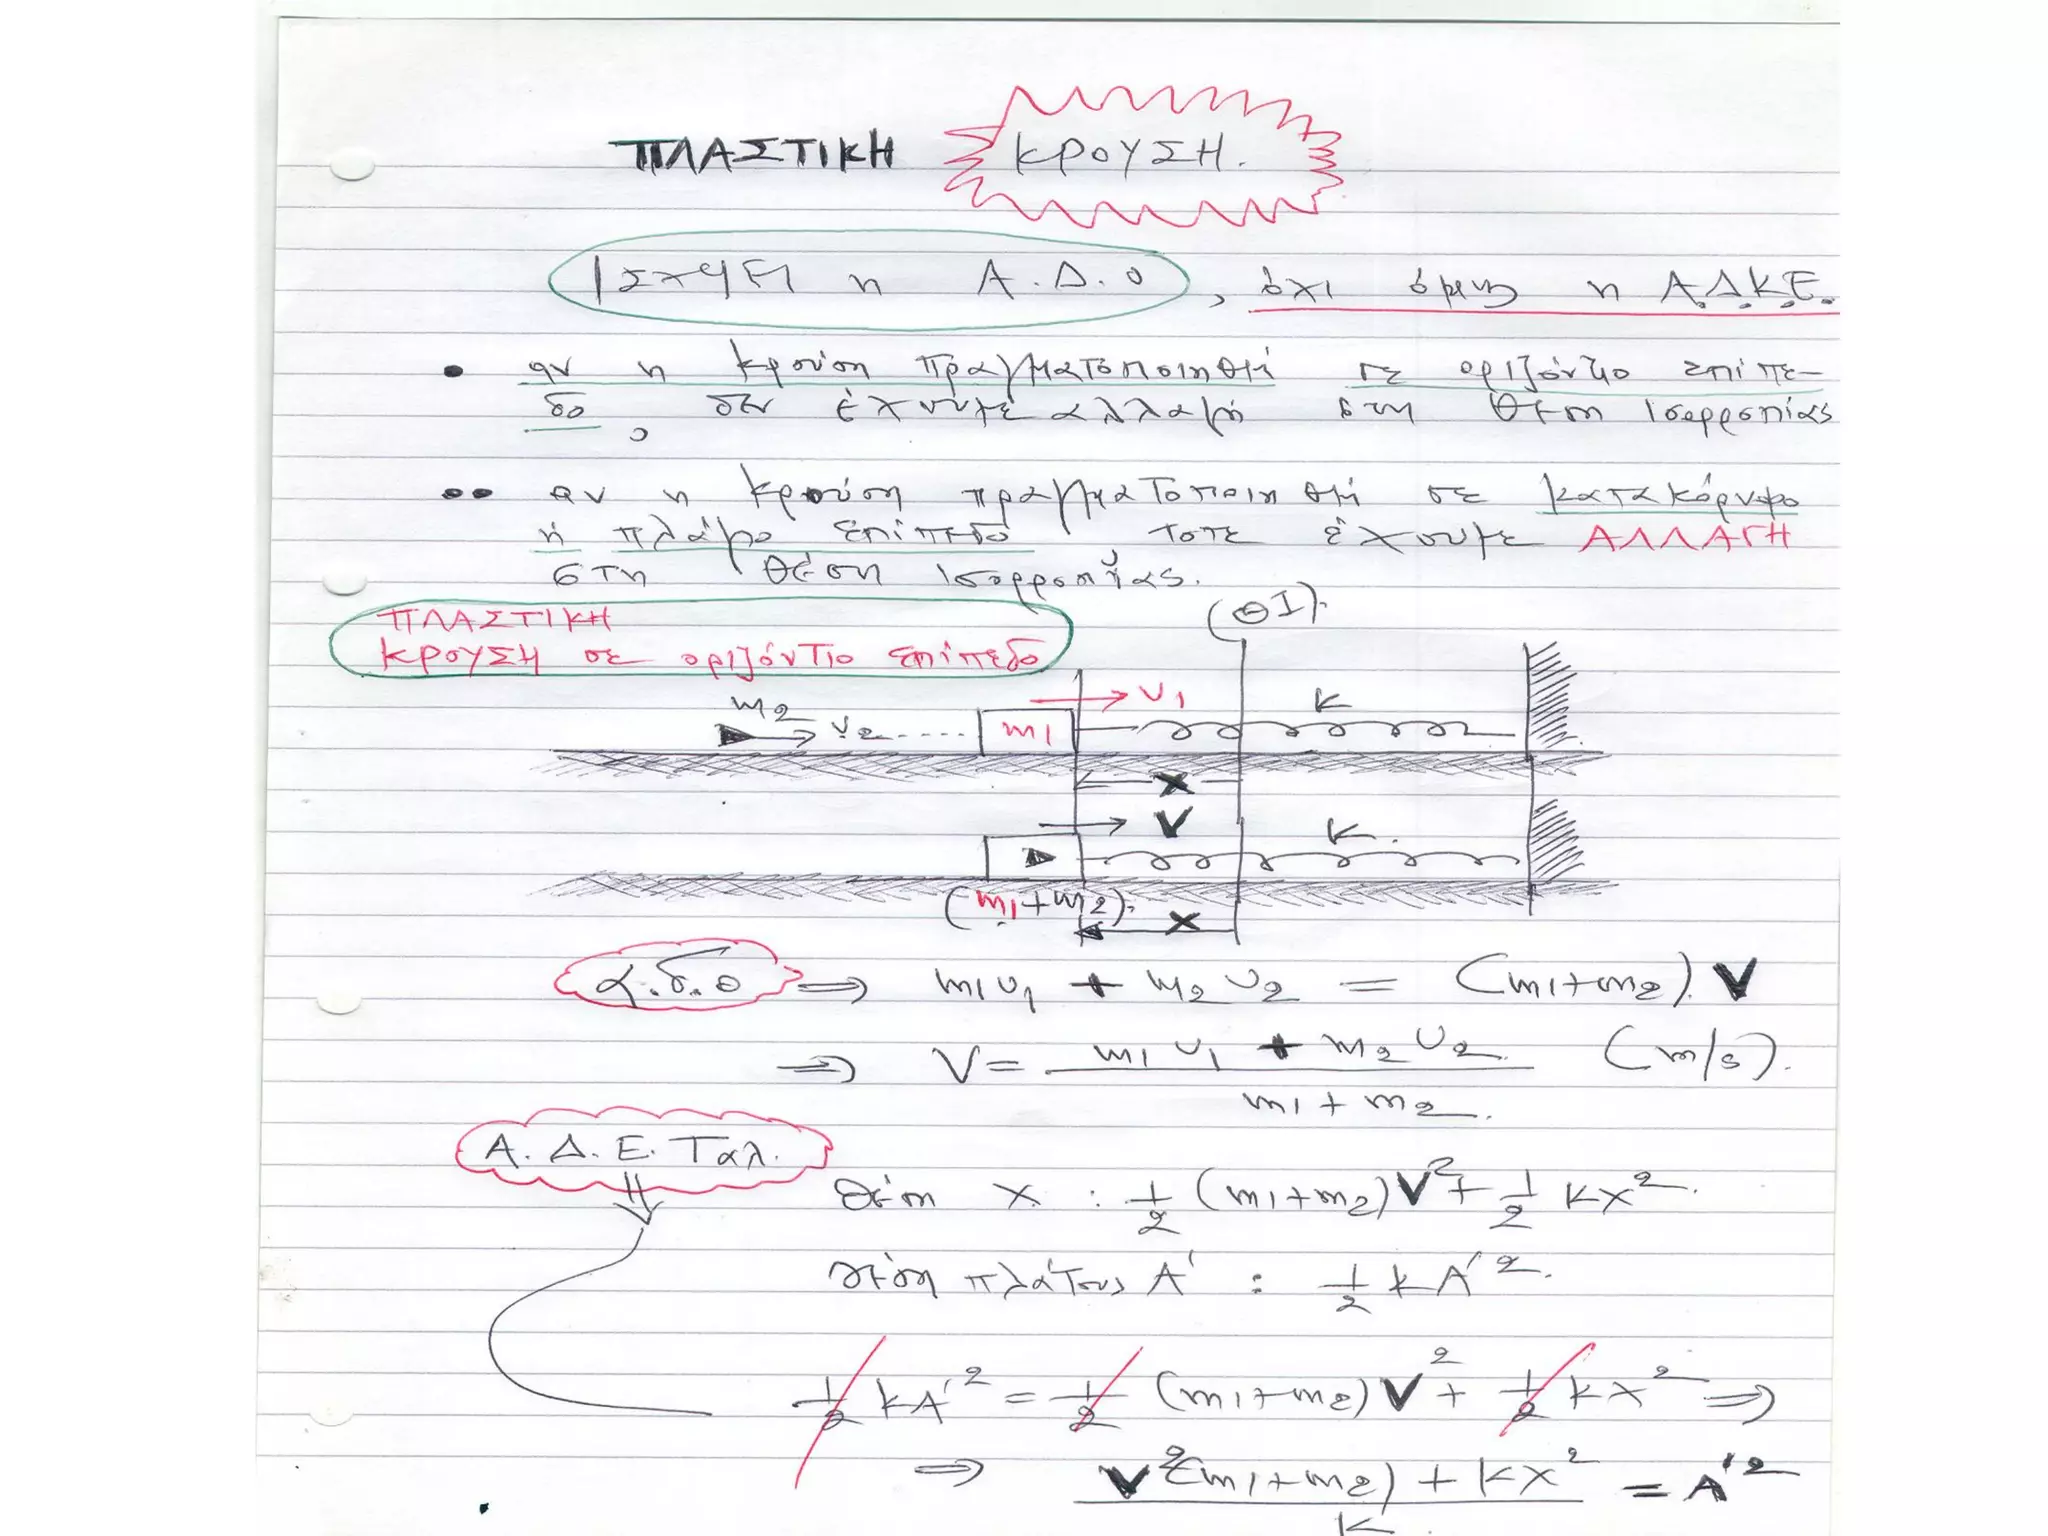 ΠΛΑΣΤΙΚΗ ΚΡΟΥΣΗ.
ΙΣΧΥΕΙ η Α.Δ.Ο, όχι όμως η Α.Δ.Κ.Ε.
• αν η κρούση πραγματοποιηθεί σε οριζόντιο επίπε-
δο, δεν έχουμε αλλαγή στη θέση ισορροπίας
•• αν η κρούση πραγματοποιηθεί σε κατακόρυφο
ή πλάγιο επίπεδο τοτε έχουμε ΑΛΛΑΓΗ
στη θέση ισορροπίας.
(ΘΙ).
ΠΛΑΣΤΙΚΗ
ΚΡΟΥΣΗ σε οριζόντιο επίπεδο
m2 υ2 m1 υ1 K
x
V K.
(m1+m2).
x
α.δ.ο ⇒ m1υ1 + m2υ2 = (m1+m2).V
⇒ V = m1υ1 + m2υ2 / m1+m2. (m/s).
Α.Δ.Ε.Ταλ.
θέση x : 1/2 (m1+m2)V² + 1/2 Kx².
θέση πλάτους A' : 1/2 KA'².
1/2 KA'² = 1/2 (m1+m2)V² + 1/2 Kx² ⇒
⇒ V²(m1+m2) + Kx² / K = A'²